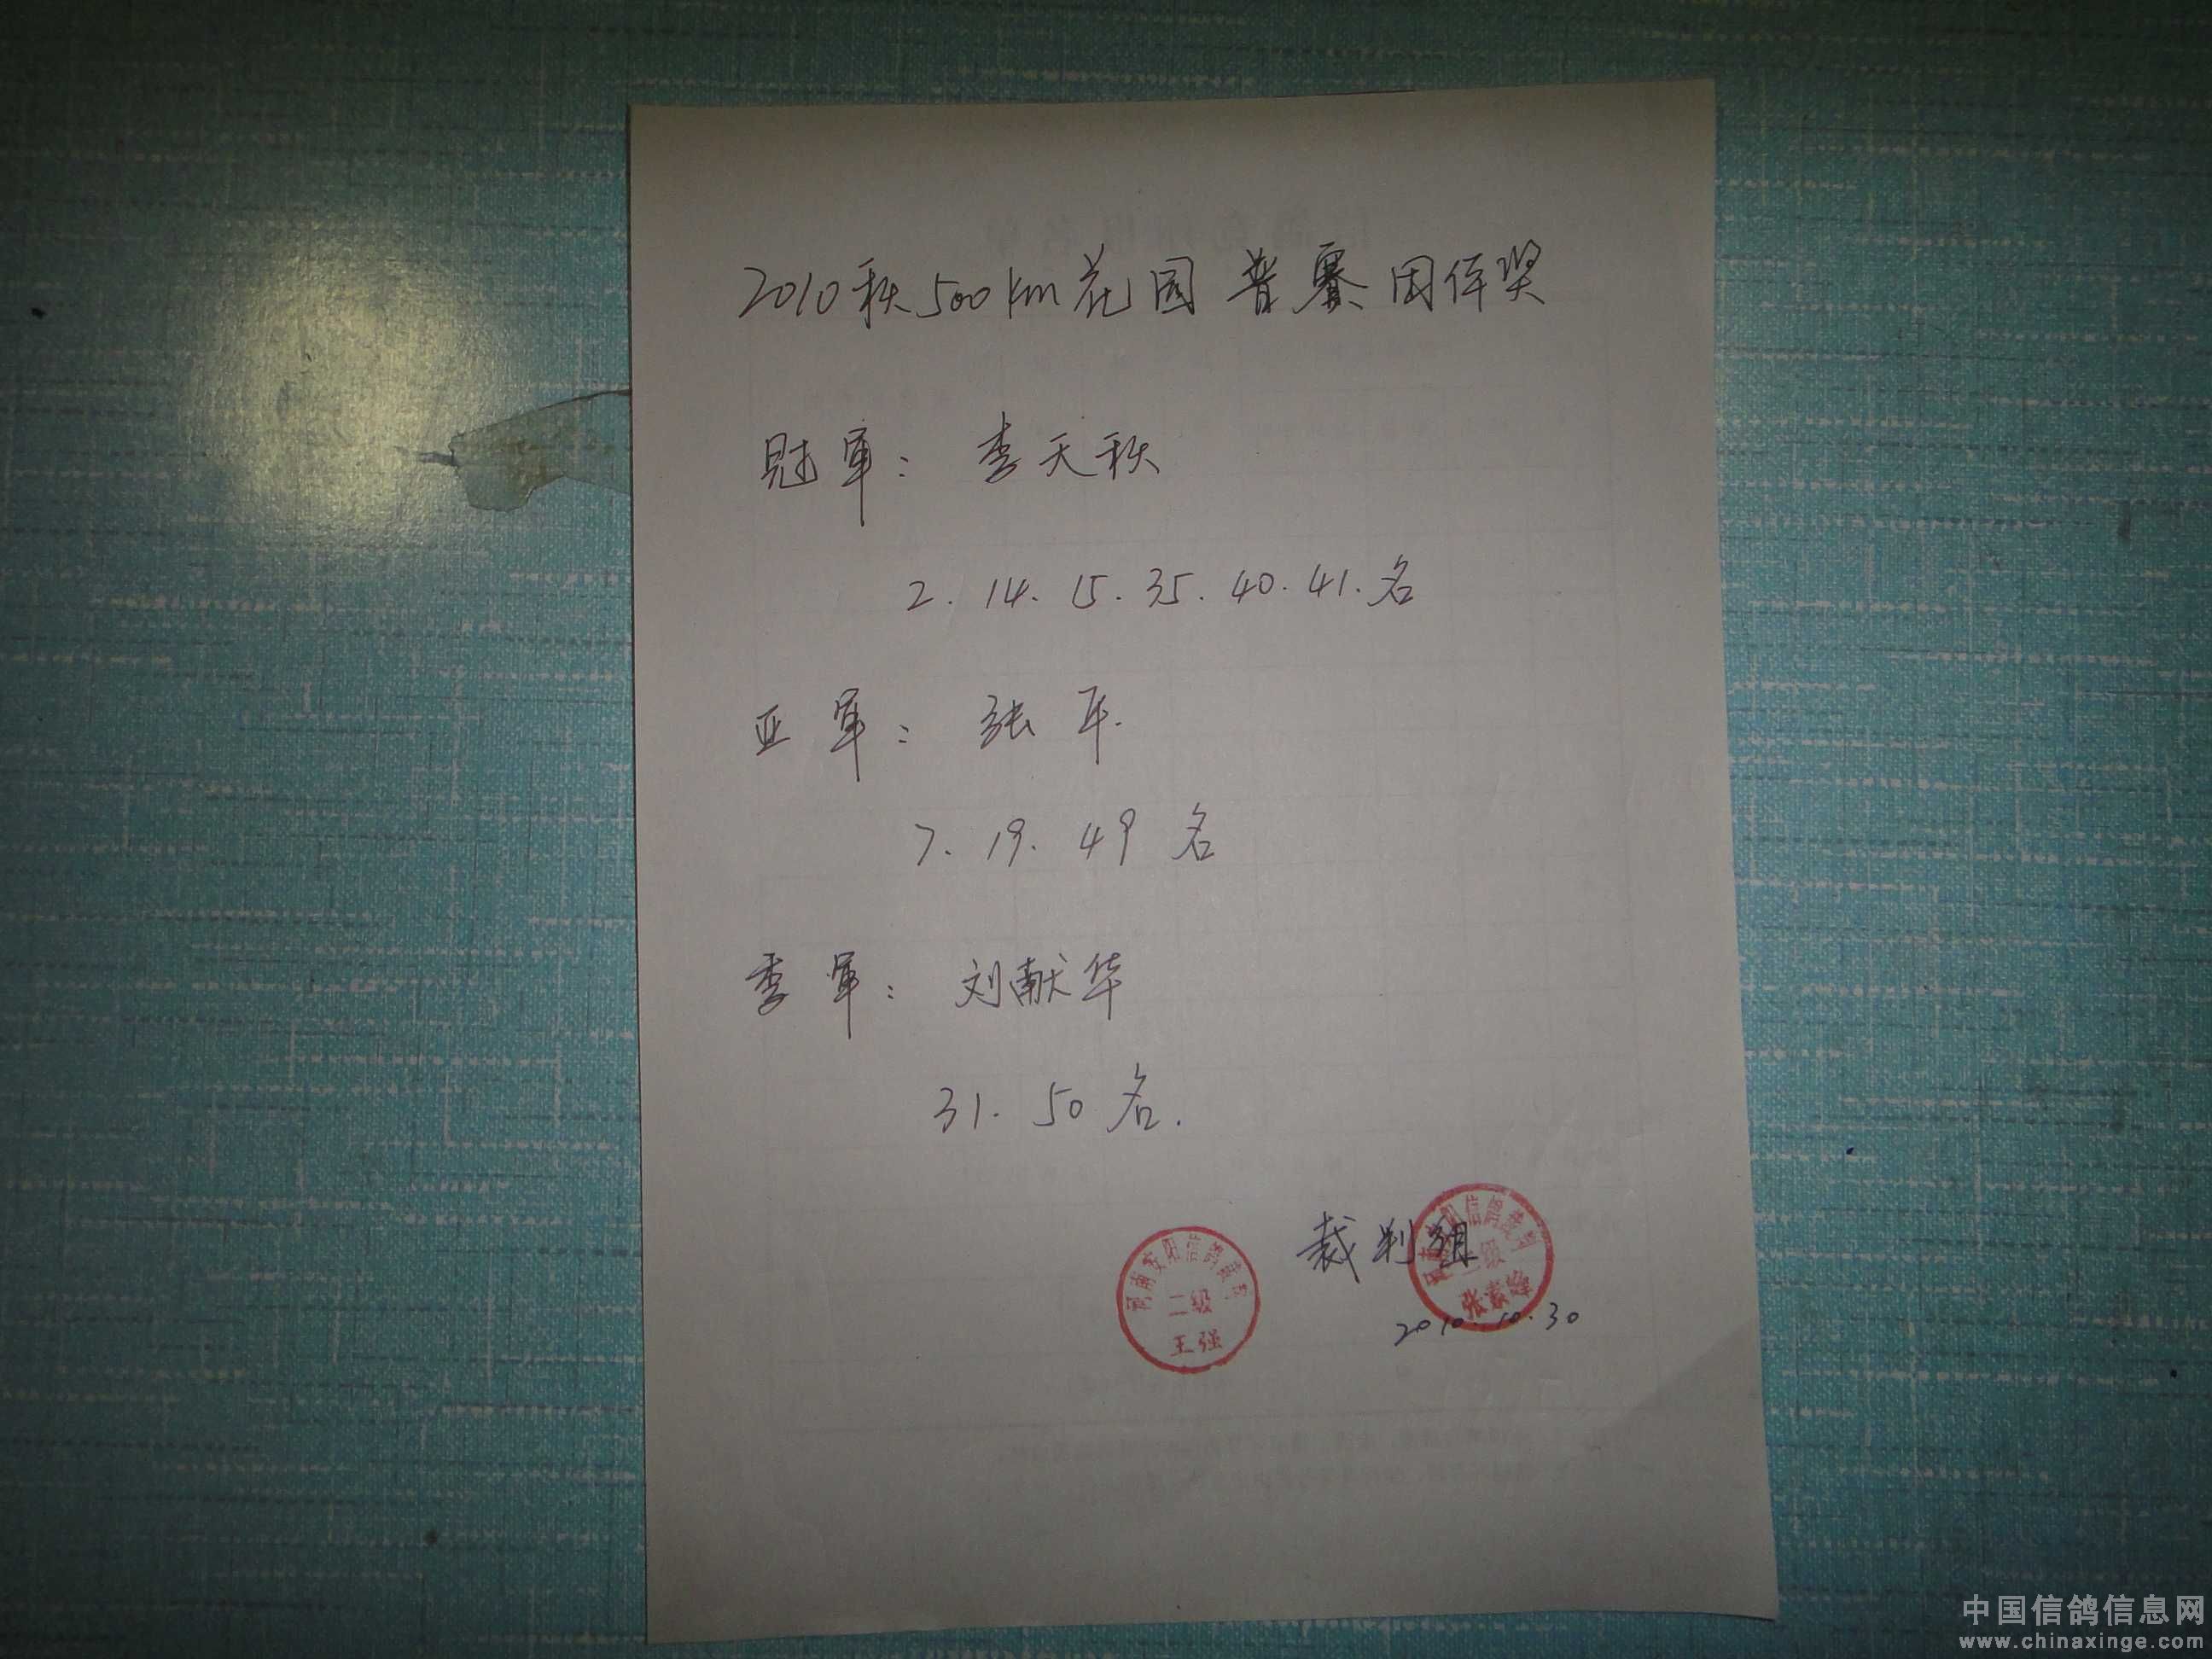 2010秋500km花园普赛团体奖
冠军：李天秋
2.14.15.35.40.41.名
亚军：张军.
7.19.49名
季军：刘献华
31.50名.
裁判组
2010.10.30
河南安阳信鸽裁判
二级
王强
河南安阳信鸽裁判
二级
中国信鸽信息网
www.chinaxinge.com